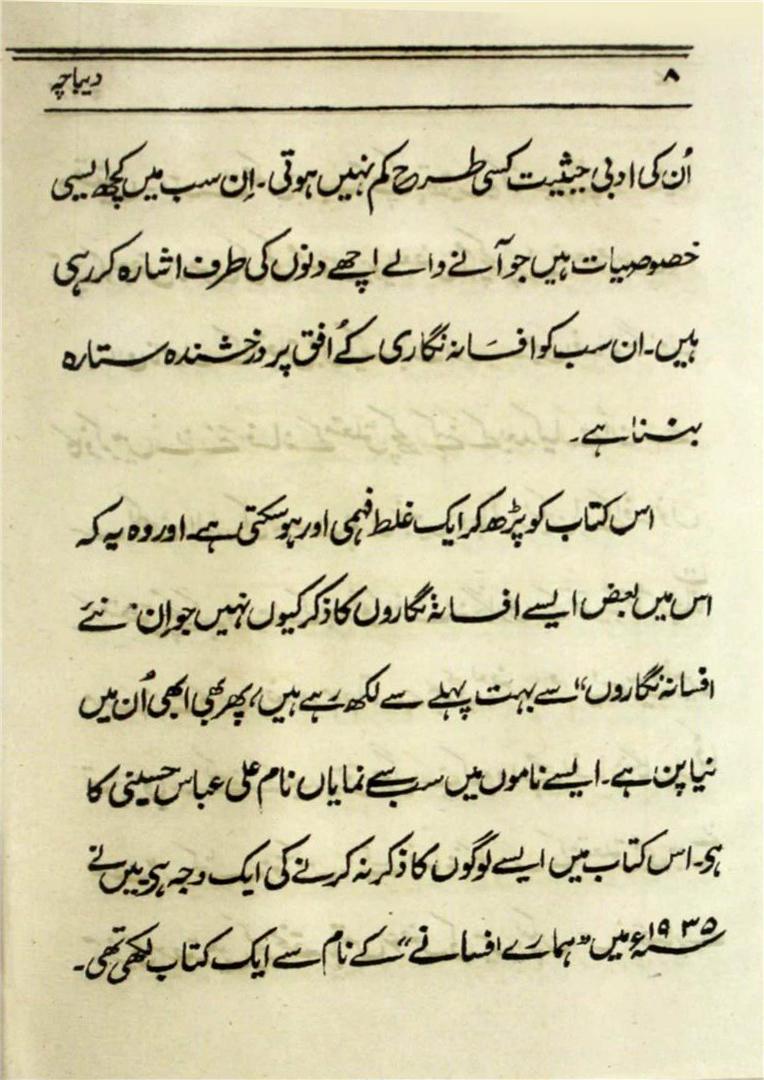 ۸
دیباچہ
اُن کی ادبی حیثیت کسی طرح کم نہیں ہوتی۔ اِن سب میں کچھ ایسی
خصوصیات ہیں جو آنے والے اچھے دنوں کی طرف اشارہ کر رہی
ہیں۔ ان سب کو افسانہ نگاری کے اُفق پر درخشندہ ستارہ
بننا ہے۔
اس کتاب کو پڑھ کر ایک غلط فہمی اور ہو سکتی ہے۔ اور وہ یہ کہ
اس میں بعض ایسے افسانہ نگاروں کا ذکر کیوں نہیں جو اِن "نئے
افسانہ نگاروں" سے بہت پہلے سے لکھ رہے ہیں، پھر بھی ابھی اُن میں
نیا پن ہے۔ ایسے ناموں میں سب سے نمایاں نام علی عباس حسینی کا
ہی۔ اس کتاب میں ایسے لوگوں کا ذکر نہ کرنے کی ایک وجہ ہی۔ میں نے
۱۹۳۵ء میں "ہمارے افسانے" کے نام سے ایک کتاب لکھی تھی۔